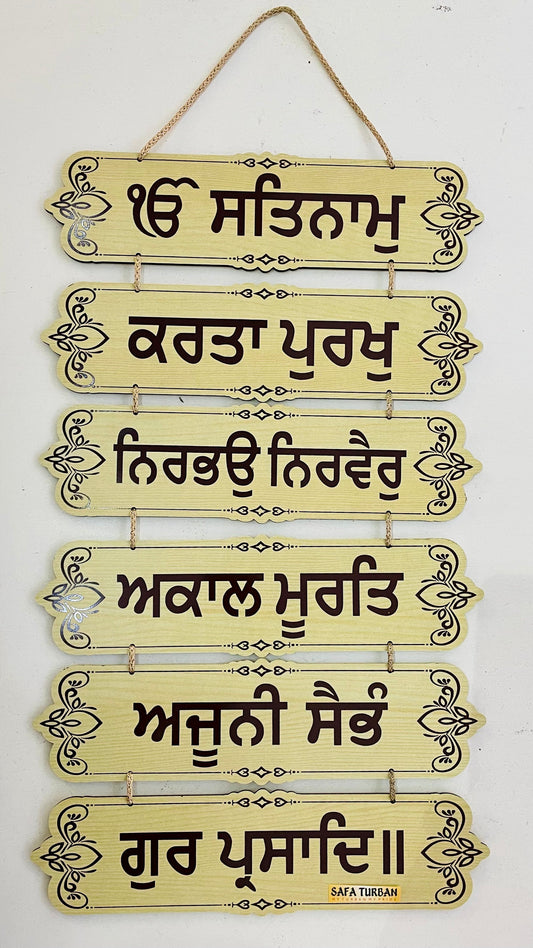 ੴ ਸਤਿਨਾਮੁ
ਕਰਤਾ ਪੁਰਖੁ
ਨਿਰਭਉ ਨਿਰਵੈਰੁ
ਅਕਾਲ ਮੂਰਤਿ
ਅਜੂਨੀ ਸੈਭੰ
ਗੁਰ ਪ੍ਰਸਾਦਿ॥
SAFA TURBAN